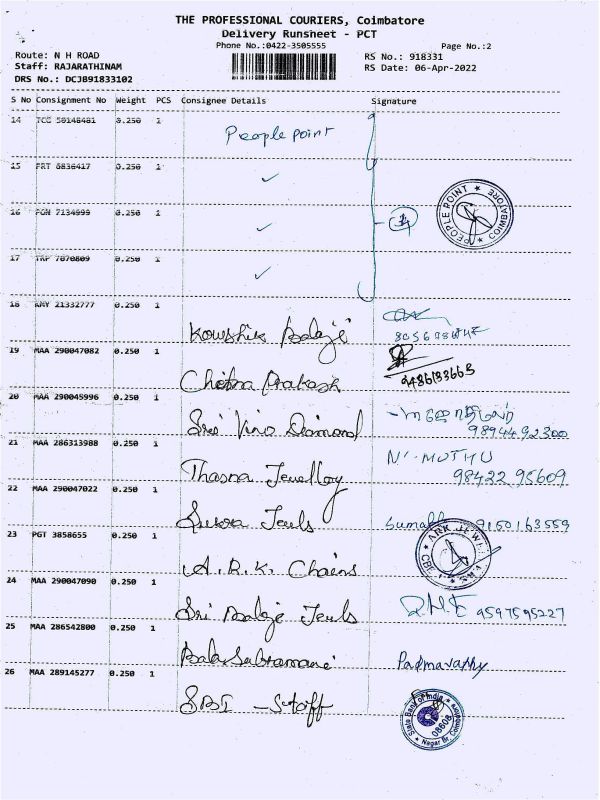 THE PROFESSIONAL COURIERS, Coimbatore
Delivery Runsheet - PCT
Phone No.:0422-3505555 Page No.:2
Route: N H ROAD RS No.: 918331
Staff: RAJARATHINAM RS Date: 06-Apr-2022
DRS No.: DCJB91833102
S No Consignment No Weight PCS Consignee Details Signature
14 TCC 50148481 0.250 1
People point
15 PRT 6836417 0.250 1
16 PGN 7134999 0.250 1
PEOPLE POINT COIMBATORE
17 TRP 7070809 0.250 1
18 KMY 21332777 0.250 1
Kowshik Balaji
19 MAA 290047082 0.250 1
Chitra Prakash 9486133665
20 MAA 290045996 0.250 1
Sri Vino Daimond 9894492300
21 MAA 286313988 0.250 1 N. MUTHU
Thasna Jewelloy 98422 95609
22 MAA 290047022 0.250 1
Jeuls 9150163559
23 PGT 3858655 0.250 1
A.R.K. Chains
24 MAA 290047090 0.250 1
Sri Balaji Jeuls 9597595227
25 MAA 286542800 0.250 1
Balasubramani Padmavathy
26 MAA 289145277 0.250 1
SBI - Staff
State Bank of India 08608 Nagar Br. Coimbatore